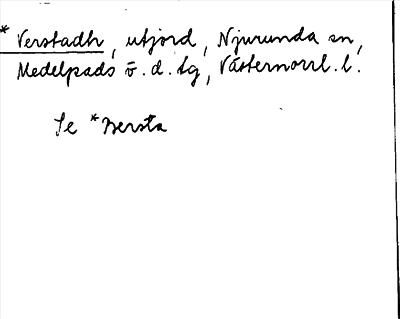 * Verstadh, utjord, Njurunda sn,
Medelpads ö. d. tg, Västernorrl. l.
Se *Bersta